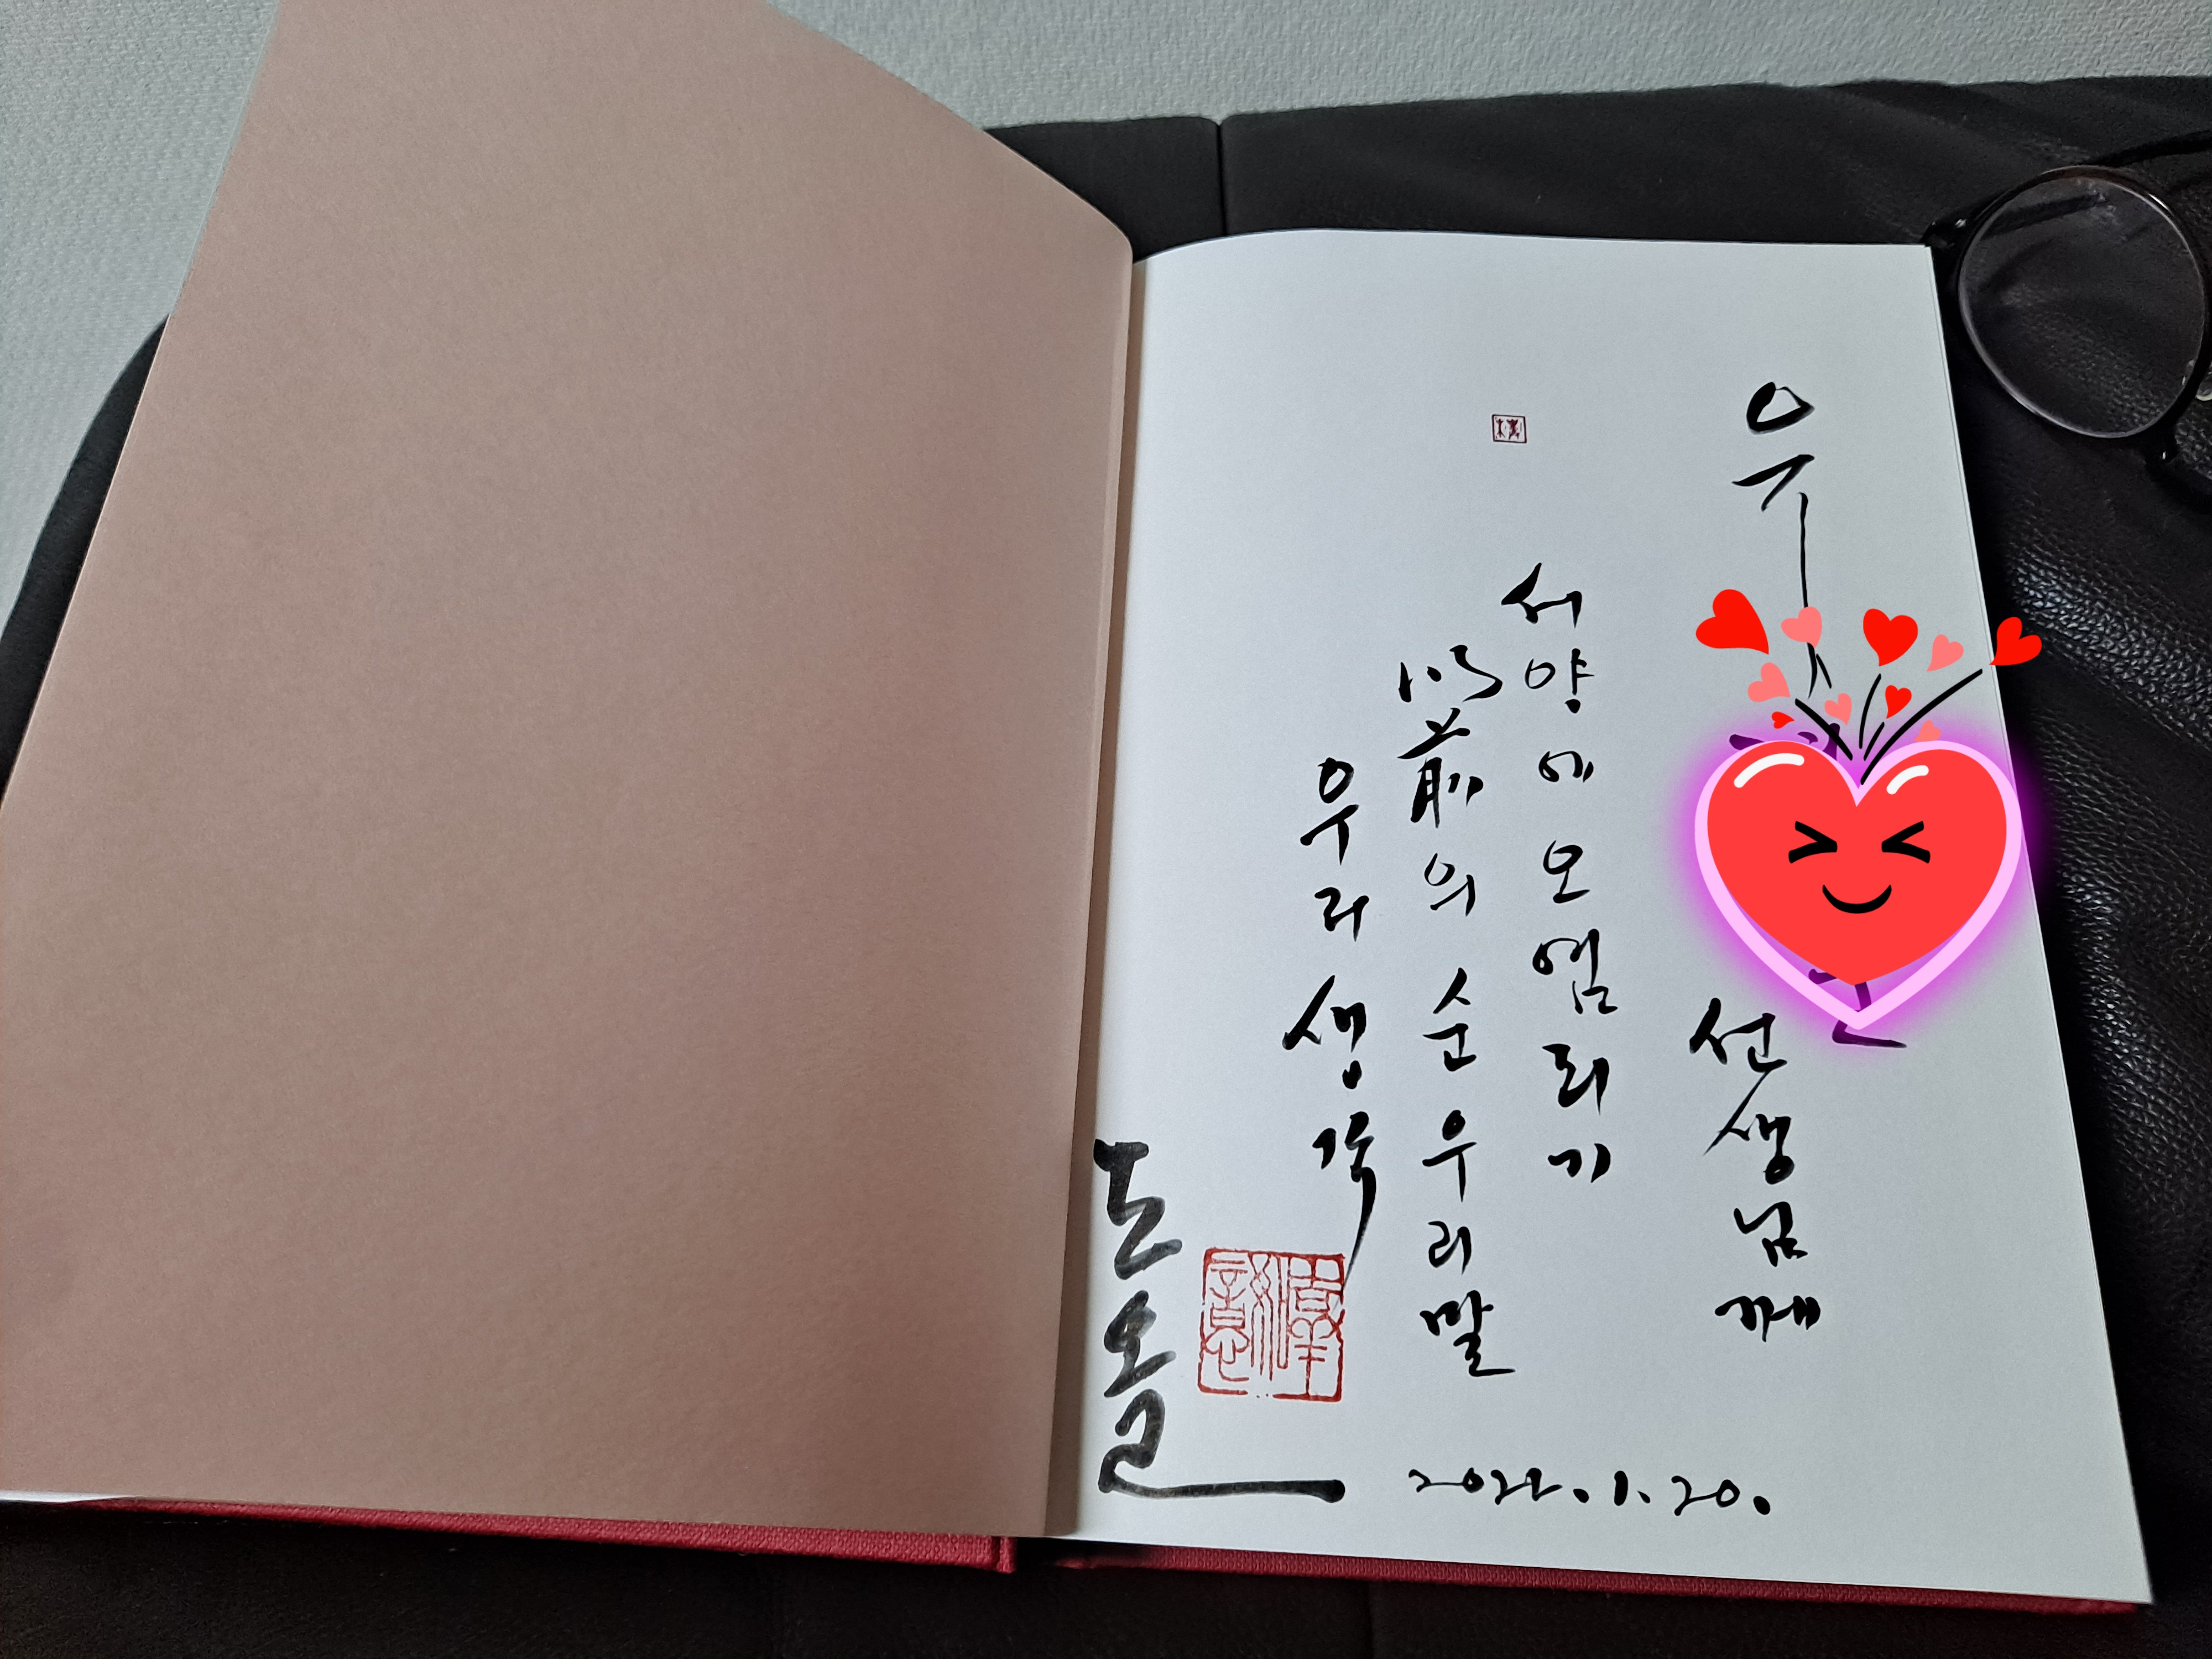 유
선생님께
서양에 오염되기
以前의 순 우리말
우리 생각
도올
2022.1.20.